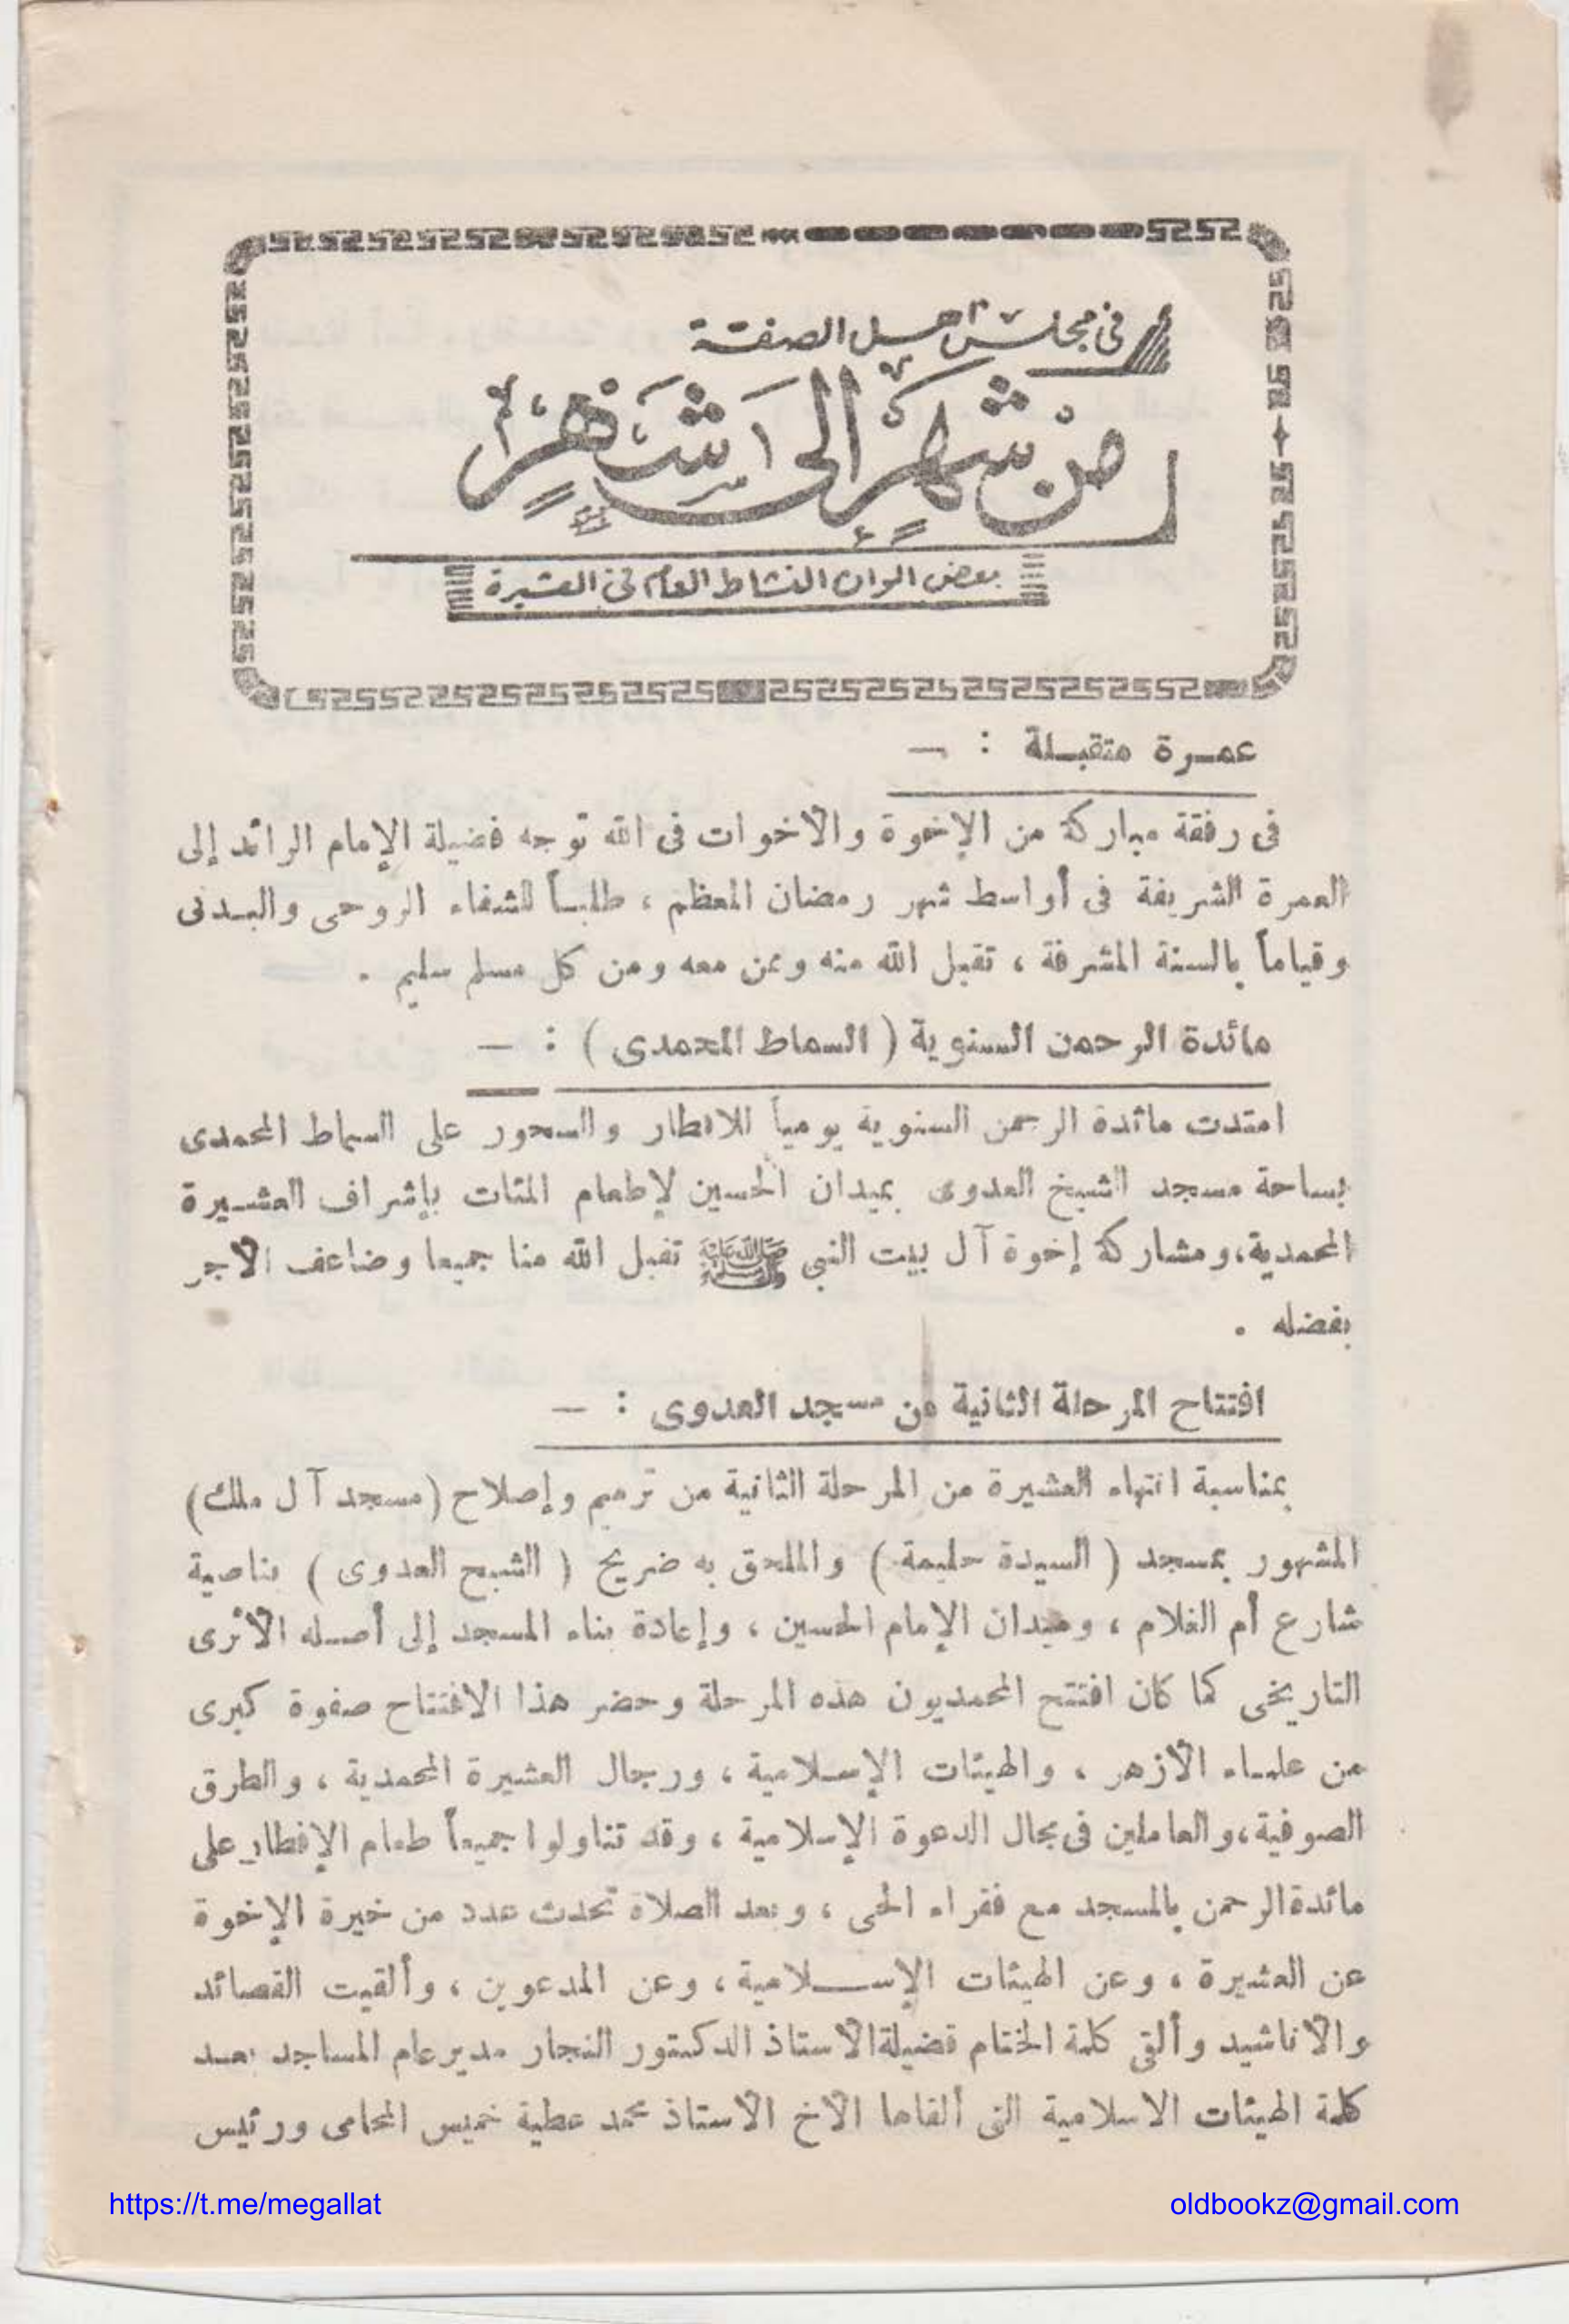 فى مجلس أهل الصفة
من شهر إلى شهر
بعض ألوان النشاط العام فى العشيرة
عمـرة متقبـلة : —
فى رفقة مباركة من الإخوة والأخوات فى الله توجه فضيلة الإمام الرائد إلى
العمرة الشريفة فى أواسط شهر رمضان المعظم ، طلبـاً للشفاء الروحى والبـدنى
وقياماً بالسنة المشرفة ، تقبل الله منه وعن معه ومن كل مسلم سليم .
مائدة الرحمن السنوية ( السماط المحمدى ) : —
امتدت مائدة الرحمن السنوية يومياً للافطار والسحور على السماط المحمدى
بساحة مسجد الشيخ العدوى بميدان الحسين لإطعام المئات بإشراف العشـيرة
المحمدية، ومشاركة إخوة آل بيت النبى ﷺ تقبل الله منا جميعا وضاعف الأجر
بفضله .
افتتاح المرحلة الثانية من مسجد العدوى : —
بمناسبة انتهاء العشيرة من المرحلة الثانية من ترميم وإصلاح (مسجد آل ملك)
المشهور بمسجد ( السيدة حليمة ) والملحق به ضريح ( الشيخ العدوى ) بناصية
شارع أم الغلام ، وميدان الإمام الحسين ، وإعادة بناء المسجد إلى أصـله الأثرى
التاريخى كما كان افتتح المحمديون هذه المرحلة وحضر هذا الافتتاح صفوة كبرى
من علمـاء الأزهر ، والهيئات الإسـلامية ، ورجال العشيرة المحمدية ، والطرق
الصوفية، والعاملين فى مجال الدعوة الإسلامية ، وقد تناولوا جميعاً طعام الإفطار على
مائدة الرحمن بالمسجد مع فقراء الحى ، وبعد الصلاة تحدث عدد من خيرة الإخوة
عن العشيرة ، وعن الهيئات الإســلامية ، وعن المدعوين ، وألقيت القصائد
والأناشيد وألقى كلمة الختام فضيلة الأستاذ الدكتور النجار مدير عام المساجد بعـد
كلمة الهيئات الاسلامية التى ألقاها الأخ الأستاذ محمد عطية خميس المحامى ورئيس
https://t.me/megallat
oldbookz@gmail.com